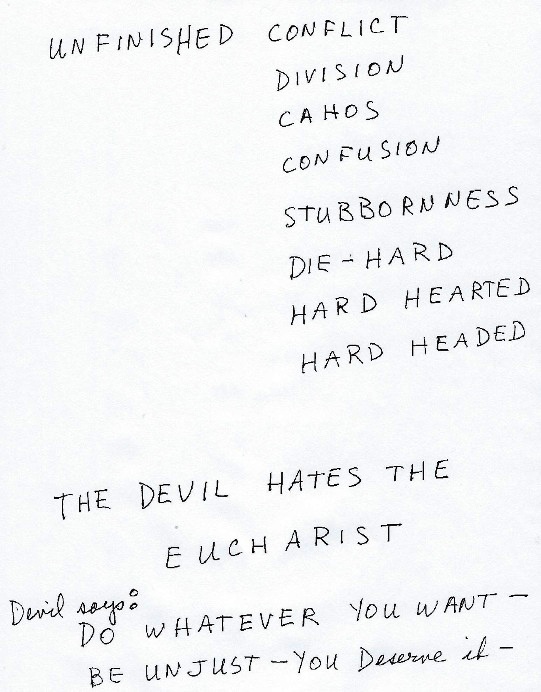 UNFINISHED CONFLICT
DIVISION
CAHOS
CONFUSION
STUBBORNNESS
DIE-HARD
HARD HEARTED
HARD HEADED
THE DEVIL HATES THE
EUCHARIST
Devil says:
DO WHATEVER YOU WANT -
BE UNJUST - YOU Deserve it -